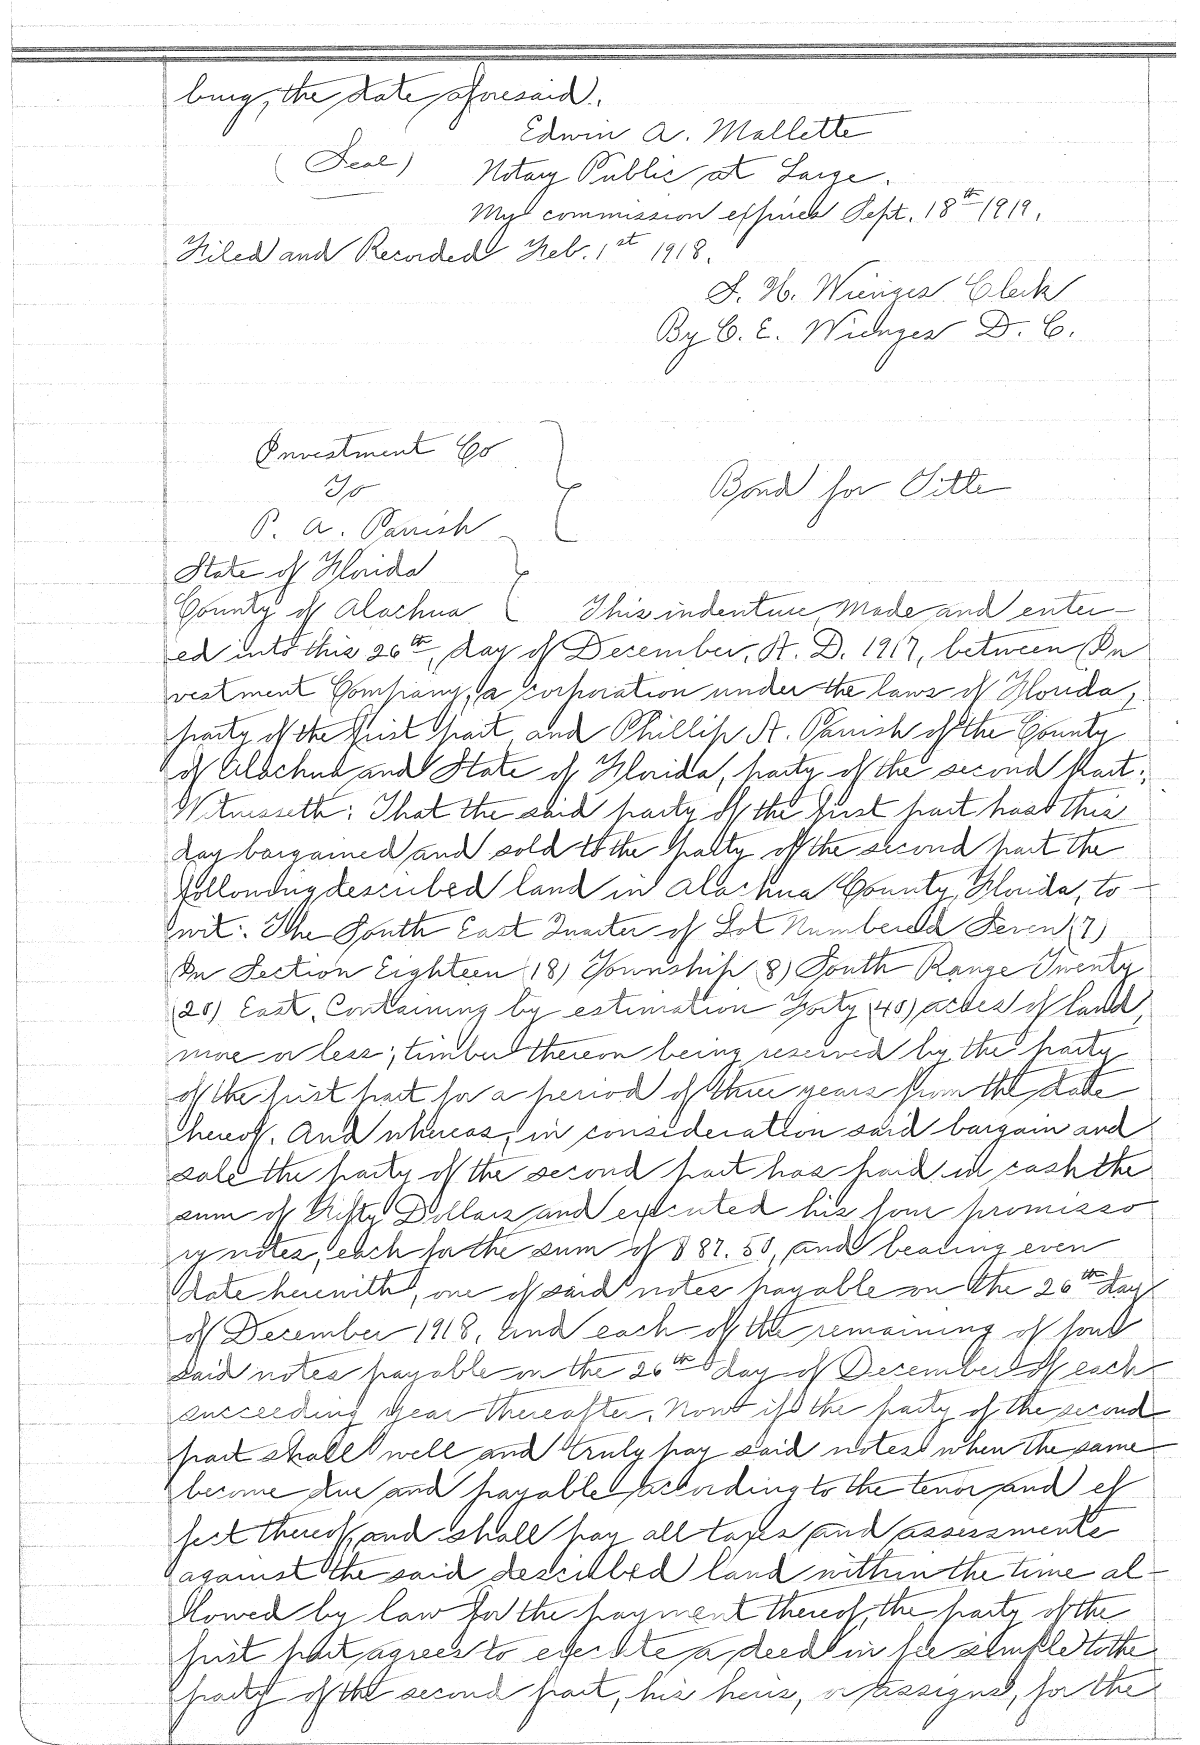 burg, the date aforesaid.
Edwin A. Mallette
(Seal) Notary Public at Large.
My commission expires Sept. 18th 1919.
Filed and Recorded Feb. 1st 1918.
S. H. Wienges Clerk
By C. E. Wienges D. C.
Investment Co
To
P. A. Parrish
Bond for Title
State of Florida
County of Alachua This indenture, Made and enter-
ed into this 26th, day of December, A. D. 1917, between In
vestment Company, a corporation under the laws of Florida,
party of the first part, and Phillip A. Parrish of the County
of Alachua and State of Florida, party of the second Part;
Witnesseth: That the said party of the first part has this
day bargained and sold to the party of the second part the
following described land in Alachua County, Florida, to-
wit: The South East Quarter of Lot Numbered Seven (7)
In Section Eighteen (18) Township (8) South Range Twenty
(20) East, Containing by estimation Forty (40) acres of land,
more or less; timber thereon being reserved by the party
of the first part for a period of three years from the date
hereof. And whereas, in consideration said bargain and
sale the party of the second part has paid in cash the
sum of Fifty Dollars and executed his four promisso
ry notes, each for the sum of $87.50, and bearing even
date herewith, one of said notes payable on the 26th day
of December 1918, and each of the remaining of four
said notes payable on the 26th day of December of each
succeeding year thereafter. Now if the party of the second
part shall well and truly pay said notes when the same
become due and payable, according to the tenor and ef
fect thereof, and shall pay all taxes and assessments
against the said described land within the time al-
lowed by law for the payment thereof, the party of the
first part agrees to execute a deed in fee simple to the
party of the second part, his heirs, or assigns, for the